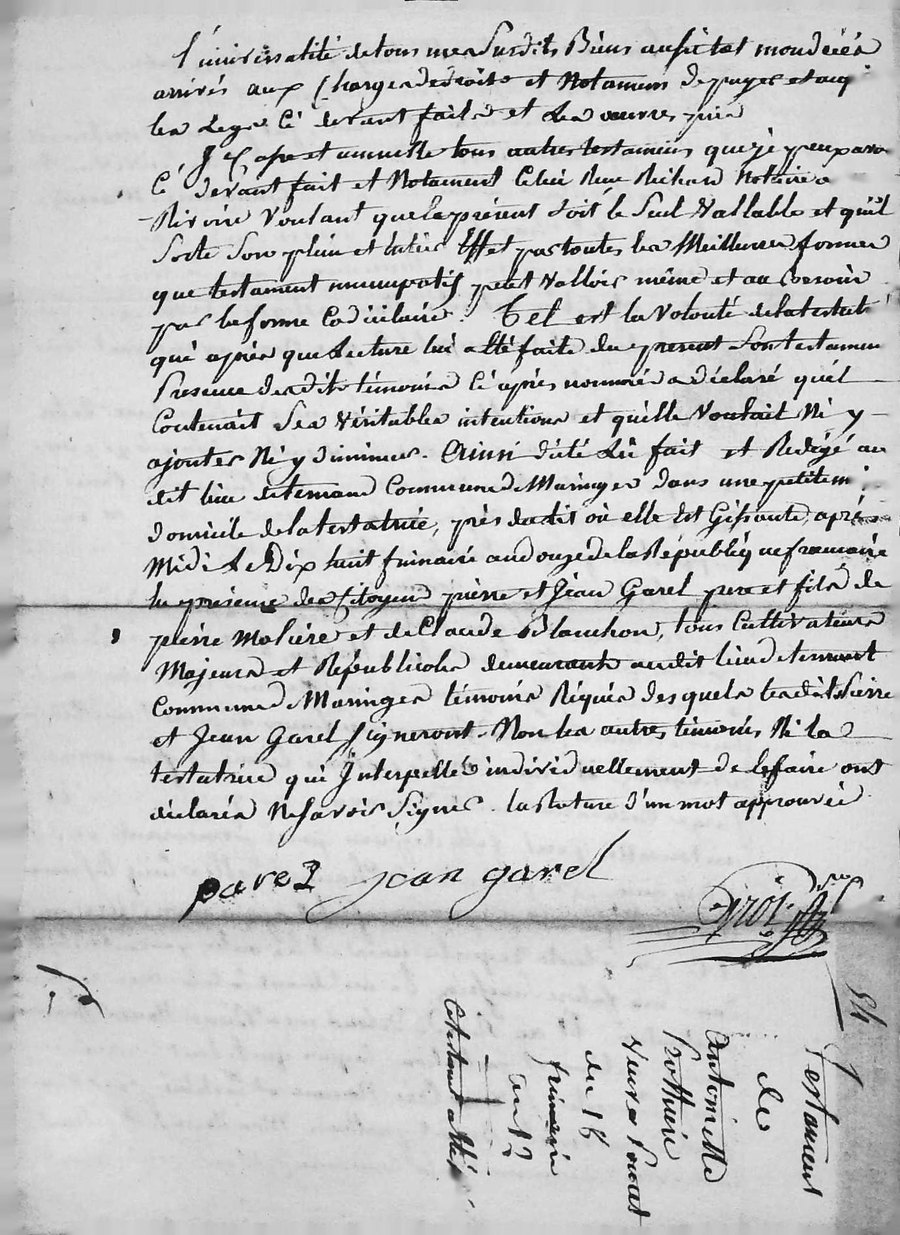 l'universalité de tous mes susdits Biens aussitot mon décès
arrivés aux Charges de droits et Notament de payer et acq
les Legs Ci devant faits et Les œuvres pies
Je Casse et annulle tous autres testamens que je peux avoir
Ci devant fait et Notament Celui Reçu Richard Notaire a
Riviere Voulant que le présent soit le Seul Vallable et qu'il
Sorte Son plein et entier Effet par toutes les Meilleures formes
que testament nuncupatif peut Valloir même et au besoin
par la forme Codicilaire. Tel est la Volonté de la testat
qui après que Lecture lui a Eté faite du present Son testamen
Presence desdits témoins Ci après nommés a déclaré qu'il
Contenait Ses Véritables intentions et qu'elle Voulait Ni y
ajouter Ni y diminuer. Ainsi fait et Redigé au
dit lieu Commune de Maringes dans une petite
domicile de la testatrice, près du lit où elle Est Gissante, après
Midi Le Dix huit frimaire an douze de la République francaise
En presence des Citoyens pierre et Jean Garel pere et fils de
pierre Moliere et de Claude Blanchon, tous Cultivateurs
Majeurs et Républicoles demeurants audit lieu
Commune de Maringes témoins Réquis desquels lesdits Pierre
et Jean Garel Signeront. Non les autres témoins Ni la
testatrice qui Interpellés individuellement de le faire ont
déclarés Ne Savoir Signer. la Rature d'un mot approuvée
garel jean garel
84
Testament
de
Antoinette
Veuve
du 18
frimaire
an 12